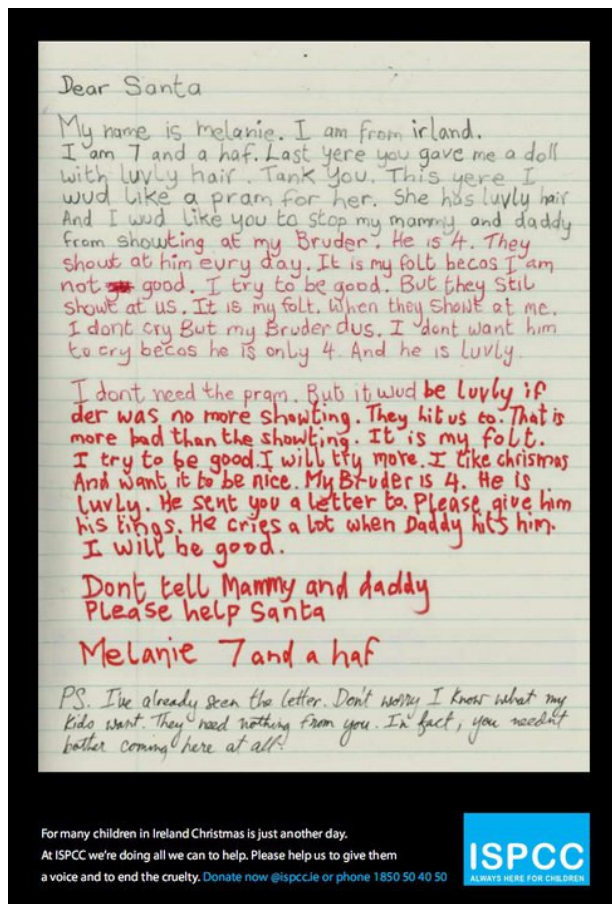 Dear Santa
My name is melanie. I am from irland.
I am 7 and a haf. Last yere you gave me a doll
with luvly hair. Tank you. This yere I
wud like a pram for her. She has luvly hair
And I wud like you to stop my mammy and daddy
from showting at my Bruder. He is 4. They
shout at him evry day. It is my folt becos I am
not good. I try to be good. But they stil
showt at us. It is my folt. When they showt at me.
I dont cry But my Bruder dus. I dont want him
to cry becos he is only 4. And he is luvly.
I dont need the pram. But it wud be luvly if
der was no more showting. They hit us to. That is
more bad than the showting. It is my folt.
I try to be good. I will try more. I like chrismas
And want it to be nice. My Bruder is 4. He is
luvly. He sent you a letter to. Please give him
his tings. He cries a lot when Daddy hits him.
I will be good.
Dont tell Mammy and daddy
Please help Santa
Melanie 7 and a haf
PS. I've already seen the letter. Don't worry I know what my
kids want. They need nothing from you. In fact, you needn't
bother coming here at all.
For many children in Ireland Christmas is just another day.
At ISPCC we're doing all we can to help. Please help us to give them
a voice and to end the cruelty. Donate now @ispcc.ie or phone 1850 50 40 50
ISPCC
ALWAYS HERE FOR CHILDREN